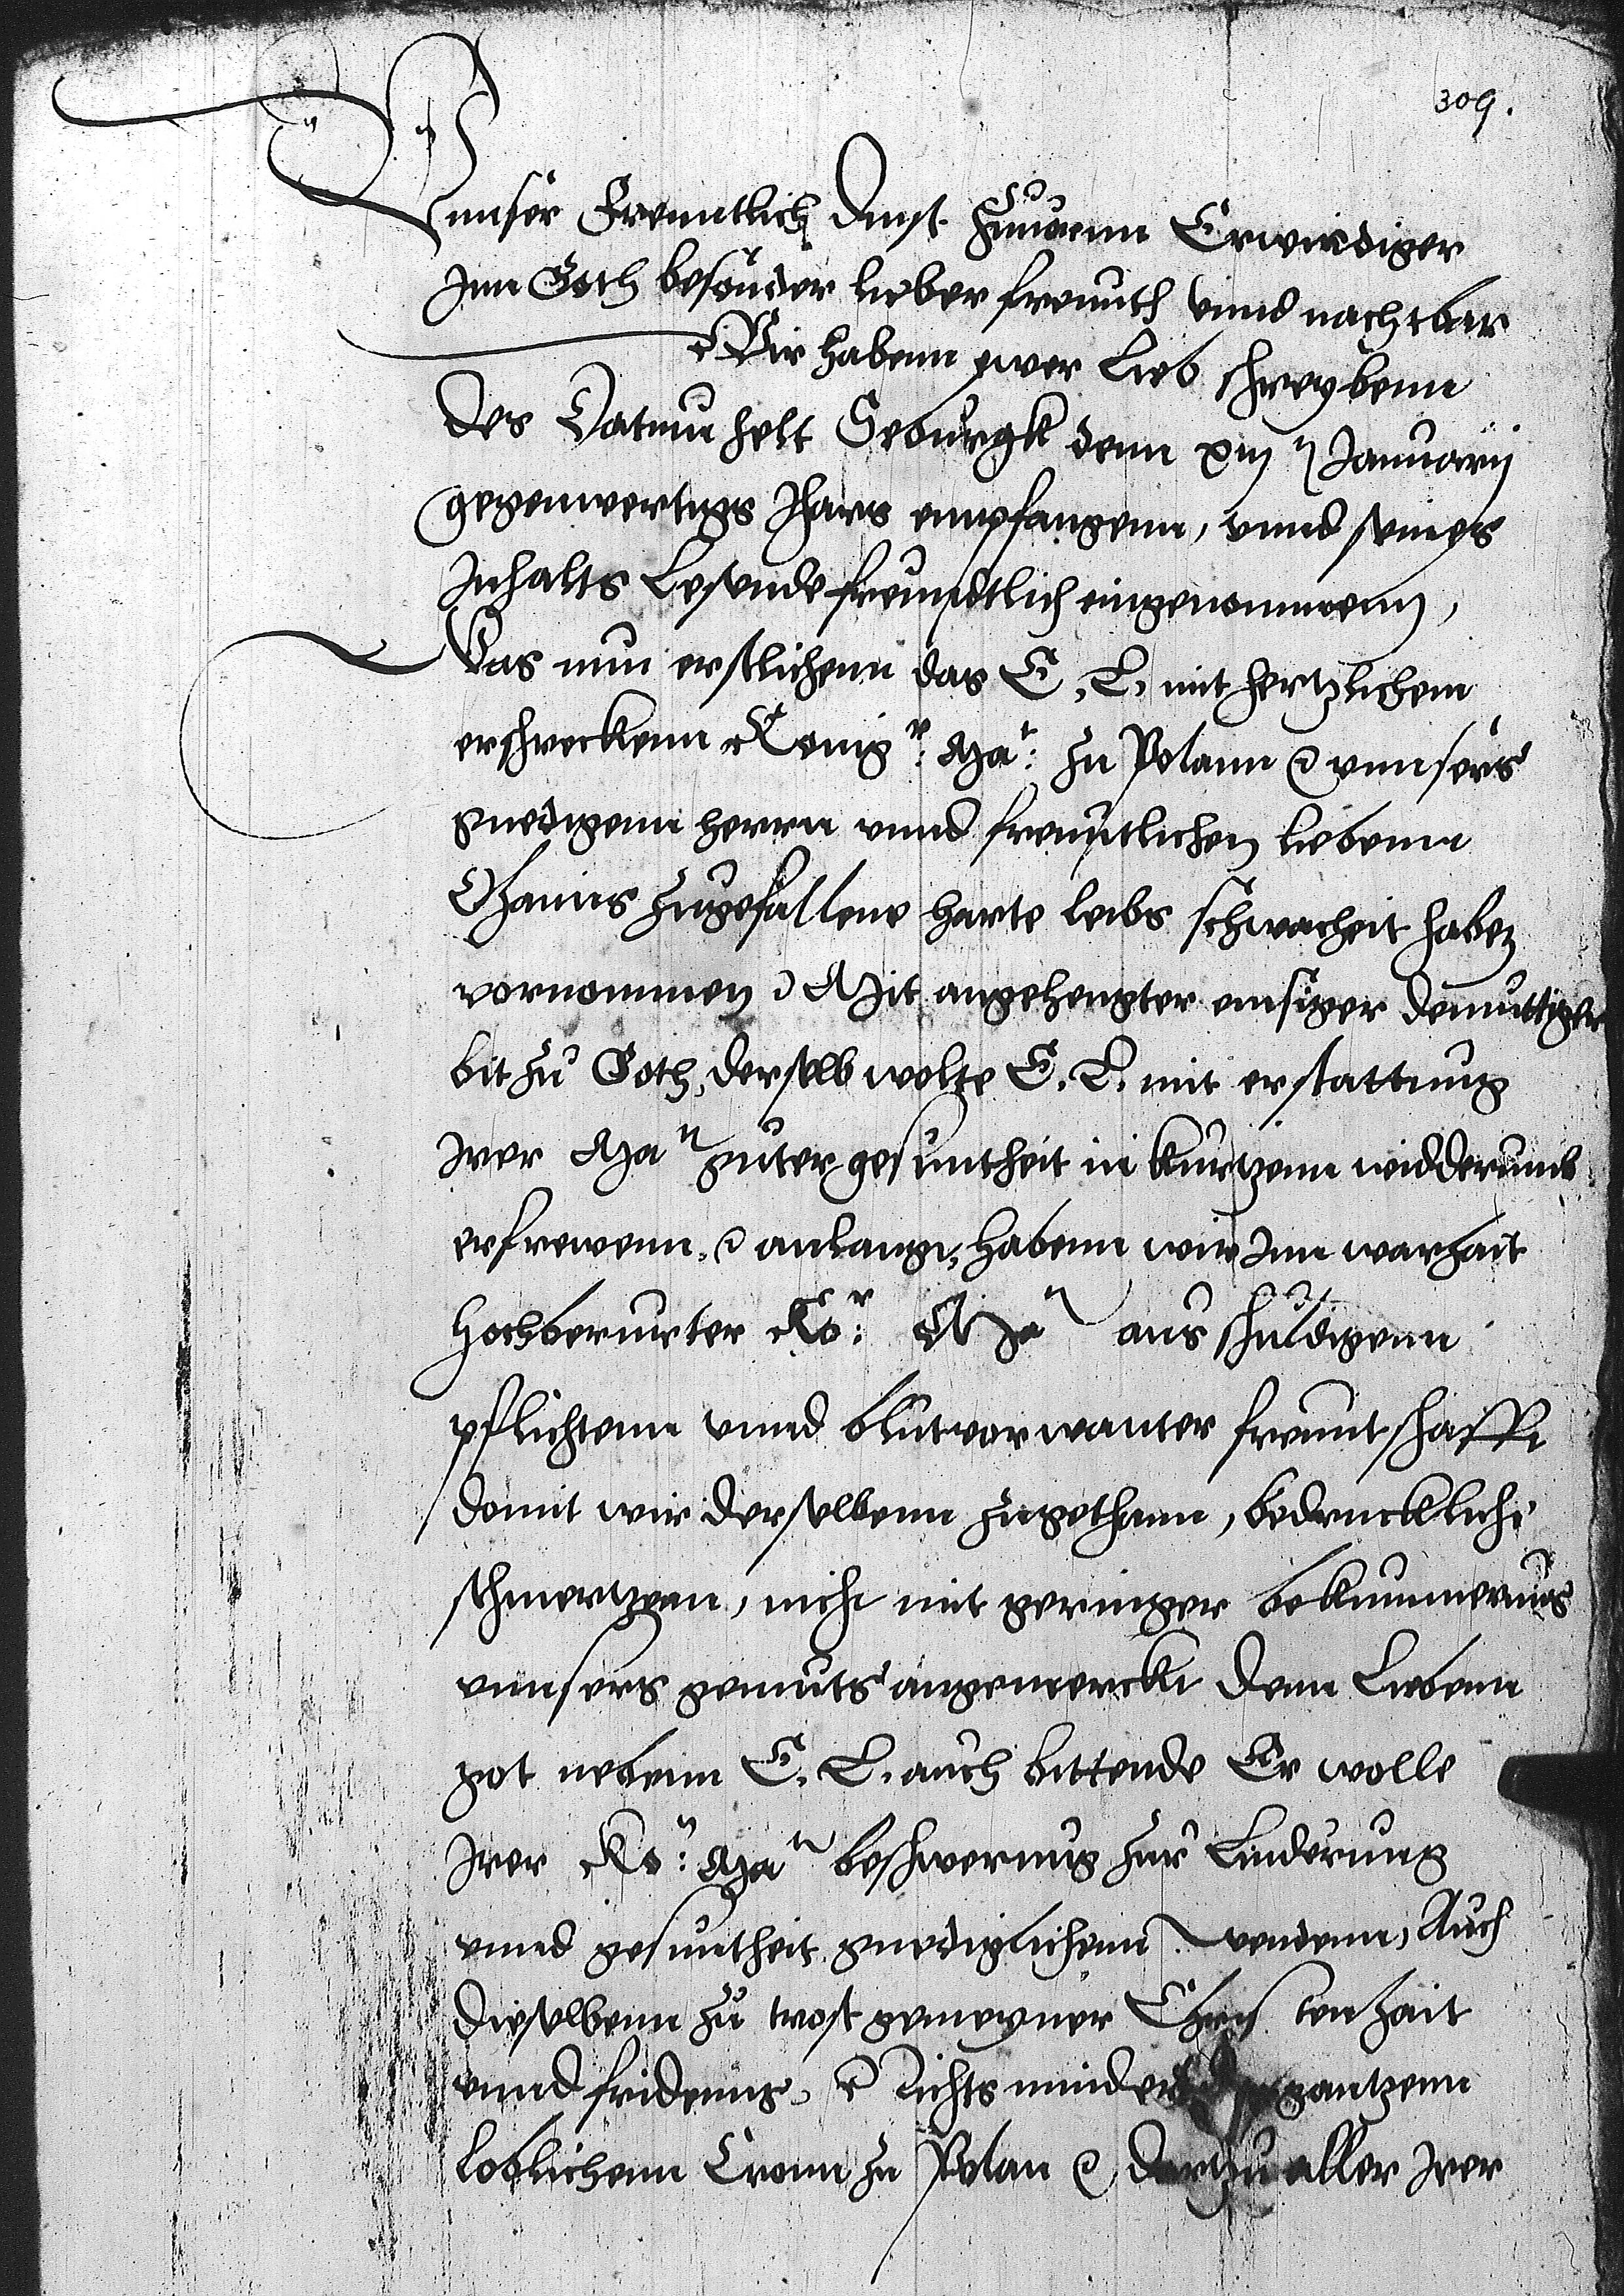 309.
Vnnser Freuntlich dinst zuuornn Erwirdiger
Jnn Goth besonder lieber freunth vnnd nachtbar
Wir habenn ewer Lieb schreybenn
des Datum helt Seburgk denn xiii Januarij
gegenwertigs Jhars empfangenn, vnnd seines
Jnhalts Lesende freundtlich eingenommenn,
Das nun erstlichenn das E. L. mit hertzlichem
erschreckenn Konigr: Mat: zu Polann etc vnnsers
gnedigenn herrn vnnd freuntlichen liebenn
Ohaims zugefallene harte leibs schwacheit haben
vornommen etc Mit angehengter emsiger demuttiger
bit zu Goth, derselb wolte E. L. mit erstattung
Jrer Mat guter gesuntheit in kurtzenn widderumb
erfrewenn etc anlangt, habenn wir Jnn warhait
Hochberurter Kor: Mat aus schuldigenn
pflichtenn vnnd blutvorwanter freuntschafft
domit wir derselbenn zugethann, bedruckliche
schmertzenn, nicht mit geringer bekummernus
vnnsers gemuts angemerckt Denn Liebenn
got nebenn E. L. auch bittende Er wolle
Jrer Ko: Mat beschwernus zur Linderung
vnnd gesuntheit gnediglichenn wendenn, Auch
dieselbenn zu trost gemeyner Christenhait
vnnd fridenns, etc Nichts minder gantzenn
loblichenn Cronn zu Polan etc dartzu aller Jrer